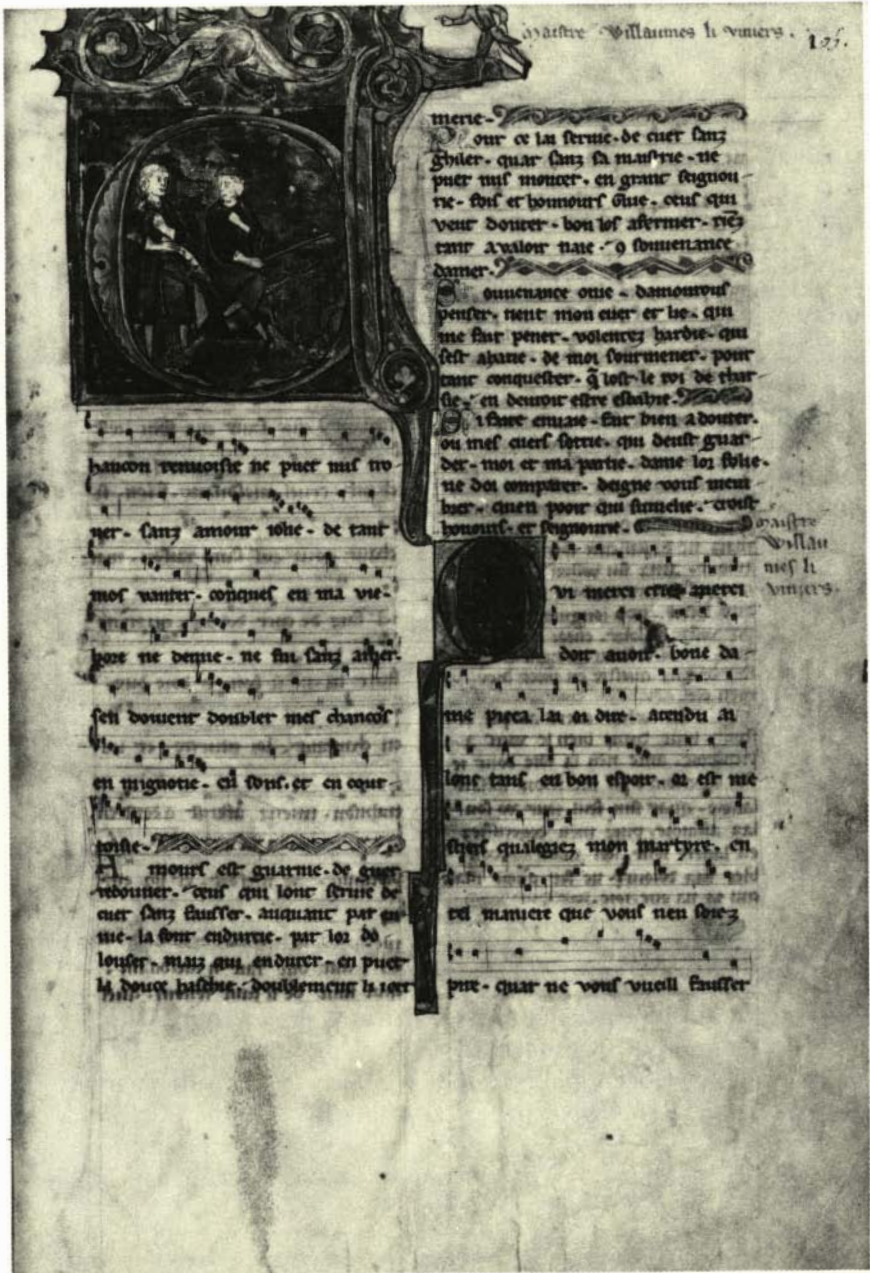 maistre Willaumes li viniers.
105.
hancon renuoisie ne puet nus tro
uer. sanz amour iolie. de tant
mos vanter. conques en ma vie.
hore ne demie. ne fui sanz amer.
sen doiuent doubler mes chancos
en mignotie. en sons. et en cour
toisie.
A mours est guarnie. de guer
redonner. ceus qui lont seruie de
cuer sanz fausser. auquant par en
uie. la sont endurcie. par lor do
louser. mais qui endurer. en puet
la douce haschie. doublement li iert
merie.
P our ce lai seruie. de cuer sanz
ghiler. quar sanz sa maistrie. ne
puet nus monter. en grant seignou
rie. sens et honnours guie. ceus qui
veut douter. bon los afermer. riēz
tant a valoir naie. 9 souuenance
damer.
S ouuenance oiue. damourous
penser. tient mon cuer et lie. qui
me fait pener. volentez hardie. qui
sest ahatie. de moi sourmener. pour
tant conquester. q̄ lost le roi de thar
sie. en deuroit estre esbahie.
S i faite enuaie. fait bien a douter.
ou mes cuers sertie. qui deust guar
der. moi et ma partie. dame lor folie.
ne doi comparer. deigne vous mem
brer. quen pooir qui sumelie. croist
honours. et seignourie.
maistre
Willau
mes li
viniers.
vi merci crie merci
doit auoir. bone da
me pieca lai oi dire. atendu ai
lonc tans en bon espoir. or est me
stiers qualegiez mon martyre. en
tel maniere que vous nen soiez
pire. quar ne vous vueill fausser